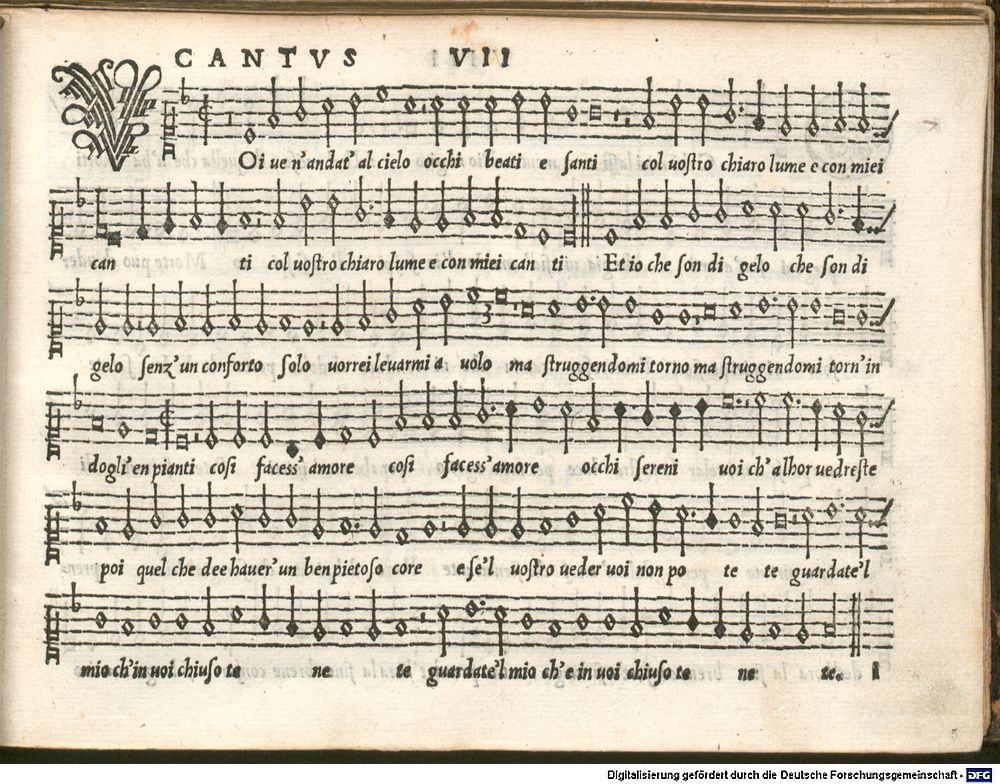 CANTVS VII
VOi ue n'andat' al cielo occhi beati e santi col uostro chiaro lume e con miei
can ti col uostro chiaro lume e con miei can ti Et io che son di gelo che son di
gelo senz' un conforto solo uorrei leuarmi a uolo ma struggendomi torno ma struggendomi torn' in
dogli' en pianti cosi facess' amore cosi facess' amore occhi sereni uoi ch' alhor uedreste
poi quel che dee hauer' un ben pietoso core e se'l uostro ueder uoi non po te te guardate'l
mio ch'in uoi chiuso te ne te guardate'l mio ch'e in uoi chiuso te ne te.
Digitalisierung gefördert durch die Deutsche Forschungsgemeinschaft - DFG